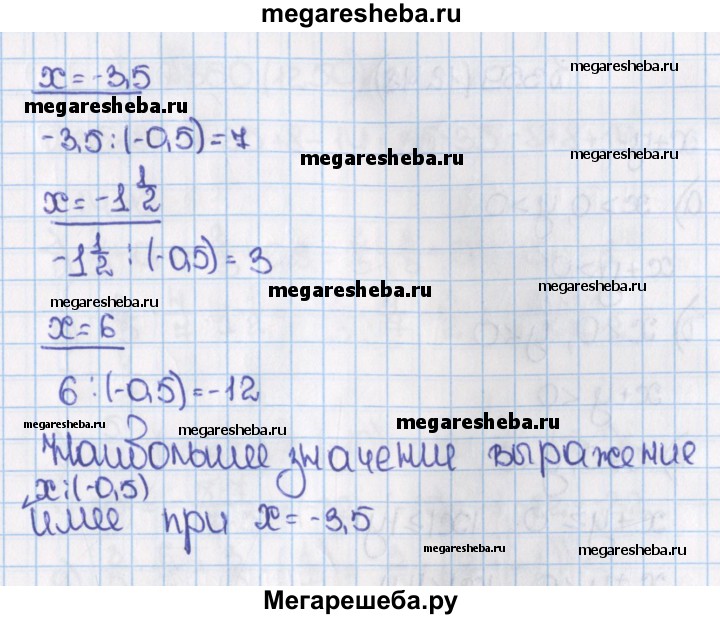 megaresheba.ru
x = -3,5
megaresheba.ru
megaresheba.ru
-3,5 : (-0,5) = 7
megaresheba.ru
megaresheba.ru
x = -1 1/2
-1 1/2 : (-0,5) = 3
megaresheba.ru
megaresheba.ru
megaresheba.ru
x = 6
6 : (-0,5) = -12
megaresheba.ru
megaresheba.ru
megaresheba.ru
Наибольшее значение выражение
x : (-0,5)
имее при x = -3,5
megaresheba.ru
megaresheba.ru
Мегарешеба.ру